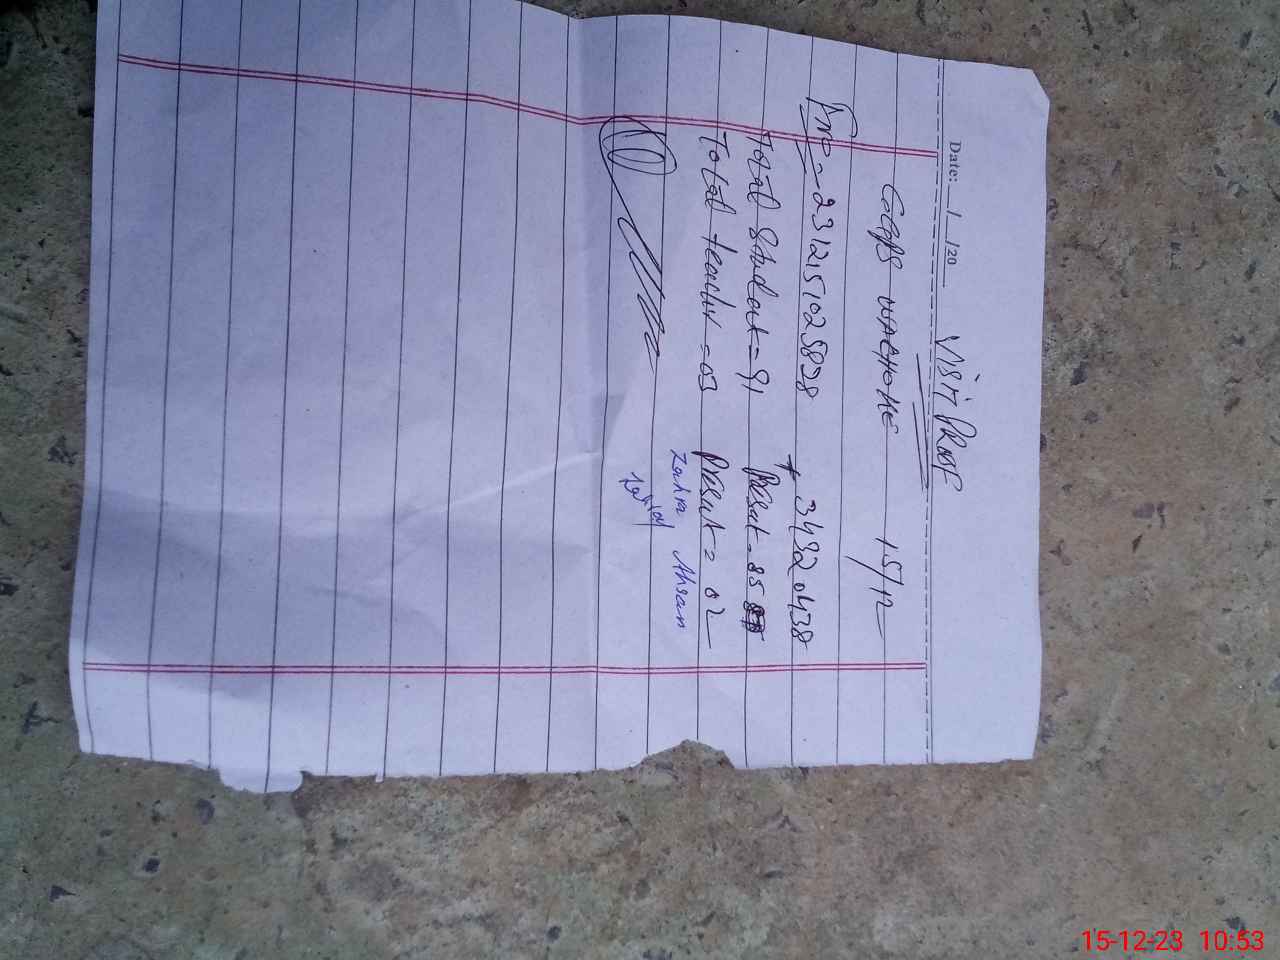 Date: __/__/20__
VISIT PROOF
GGPS WACHOKE 15/12
Pno - 231215102582 + 34320438
Total Student = 91 Present - 85
Total teacher = 03 Present = 02
Zahra Ahsan
15-12-23 10:53